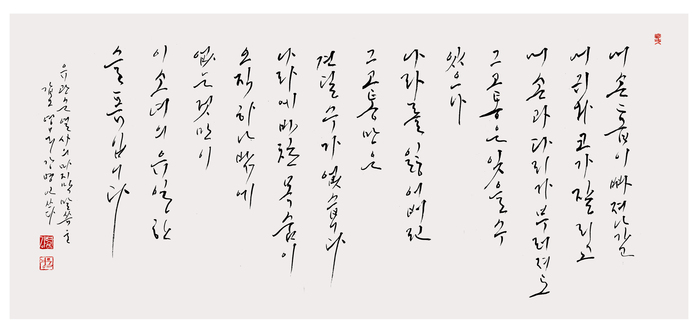 내 손톱이 빠져나갈
내 귀와 코가 잘리고
내 손과 다리가 부러져도
그 고통은 잊을 수
있으나
나라를 잃어버린
그 고통만은
견딜 수가 없습니다
나라에 바칠 목숨이
오직 하나밖에
없는 것만이
이 소녀의 유일한
슬픔입니다
유관순 열사의 마지막 말씀을
쓰다